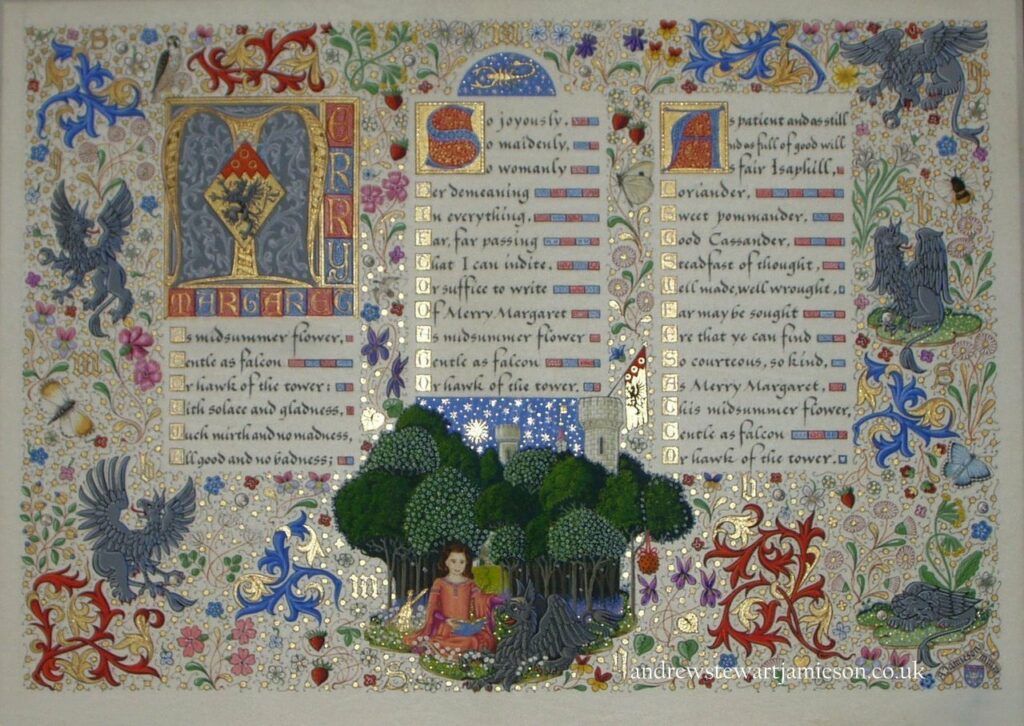 MERRY
MARGARET
As midsummer flower,
Gentle as falcon
Or hawk of the tower:
With solace and gladness,
Much mirth and no madness,
All good and no badness;
So joyously,
So maidenly,
So womanly
Her demeaning
In everything,
Far, far passing
That I can indite,
Or suffice to write
Of Merry Margaret
As midsummer flower
Gentle as falcon
Or hawk of the tower.
As patient and as still
And as full of good will
As fair Isaphill,
Coriander,
Sweet pommander,
Good Cassander,
Steadfast of thought,
Well made, well wrought,
Far may be sought
Ere that ye can find
So courteous, so kind,
As Merry Margaret,
This midsummer flower,
Gentle as falcon
Or hawk of the tower.
andrewstewartjamieson.co.uk